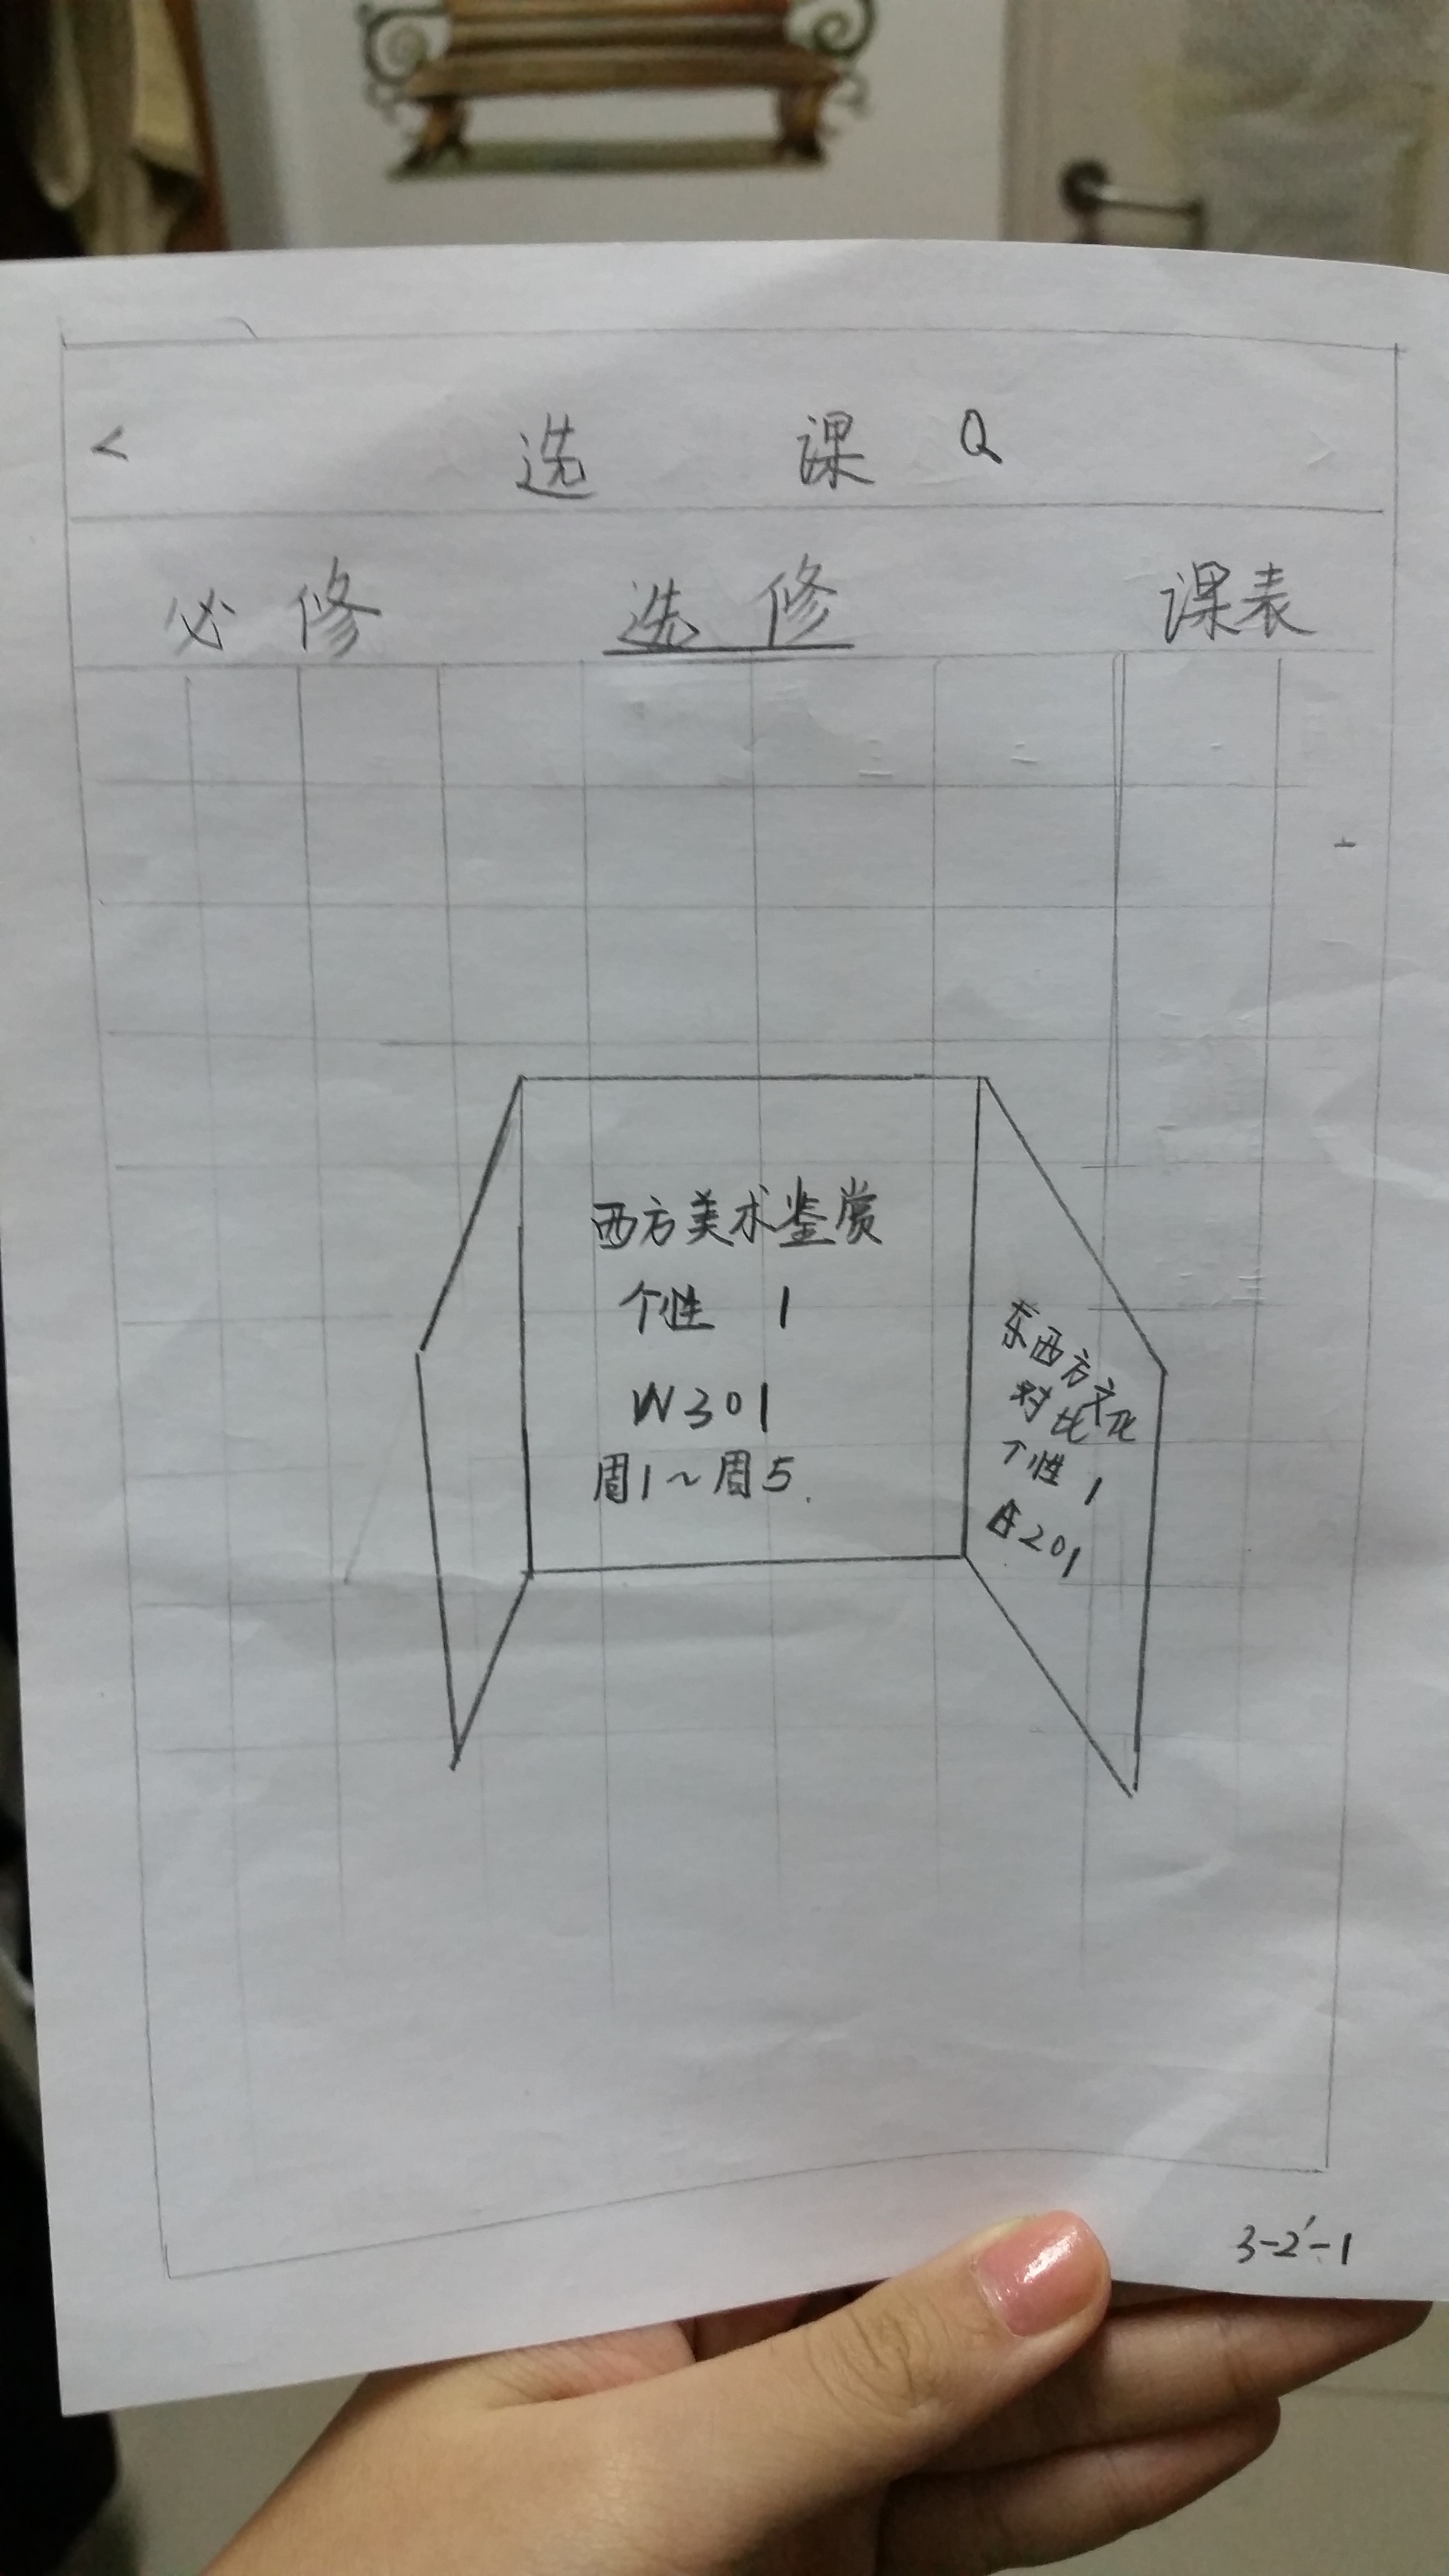 < 选 课 Q
必修 选修 课表
西方美术鉴赏
个性 1
W301
周1~周5.
东西方文化
对比
个性 1
201
3-2'-1